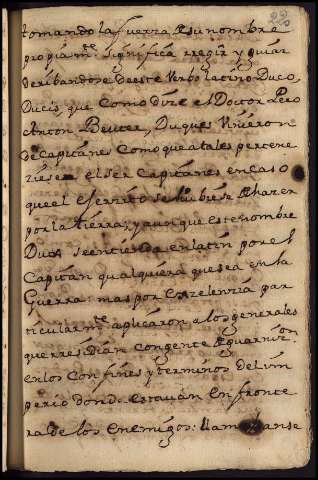 22
tomando la fuerza de su nombre
propiam.te significa rregir y guiar
deribandose de este Verbo latino Duco,
Ducis, que como dize el Doctor Pero
Anton Beuter, Duques Vinieron
de Capitanes como que a tales pertene
ziese el ser Capitanes en caso
que el exercito se hubiese de hazer
por la tierra; y aunque este nombre
Dux se entienda en latin por el
Capitan qualquiera que sea en la
Guerra: mas por exzelenzia par
ticularm.te aplicaron a los generales
que rresidian con gente de guarniz.on
en los confines y terminos del im
perio donde estauan en fronte
ra de los enemigos: llamabanse